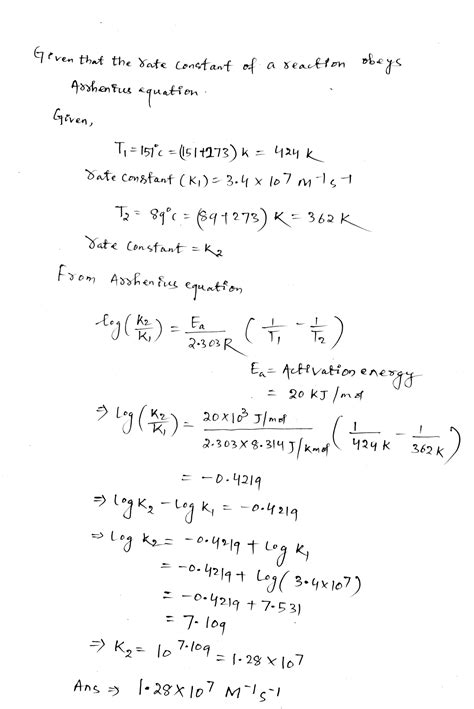 Given that the rate constant of a reaction obeys
Arrhenius equation.
Given,
T₁ = 151°c = (151+273) k = 424 k
rate constant (K₁) = 3.4 × 10⁷ M⁻¹s⁻¹
T₂ = 89°c = (89+273) K = 362 K
rate constant = K₂
From Arrhenius equation
log(K₂/K₁) = Ea/2.303R (1/T₁ - 1/T₂)
Ea = Activation energy
= 20 KJ/mol
⇒ log(K₂/K₁) = 20×10³ J/mol / 2.303×8.314 J/kmol (1/424 K - 1/362 K)
= -0.4219
⇒ log K₂ - log K₁ = -0.4219
⇒ log K₂ = -0.4219 + log K₁
= -0.4219 + log(3.4×10⁷)
= -0.4219 + 7.531
= 7.109
⇒ K₂ = 10^7.109 = 1.28×10⁷
Ans ⇒ 1.28×10⁷ M⁻¹s⁻¹